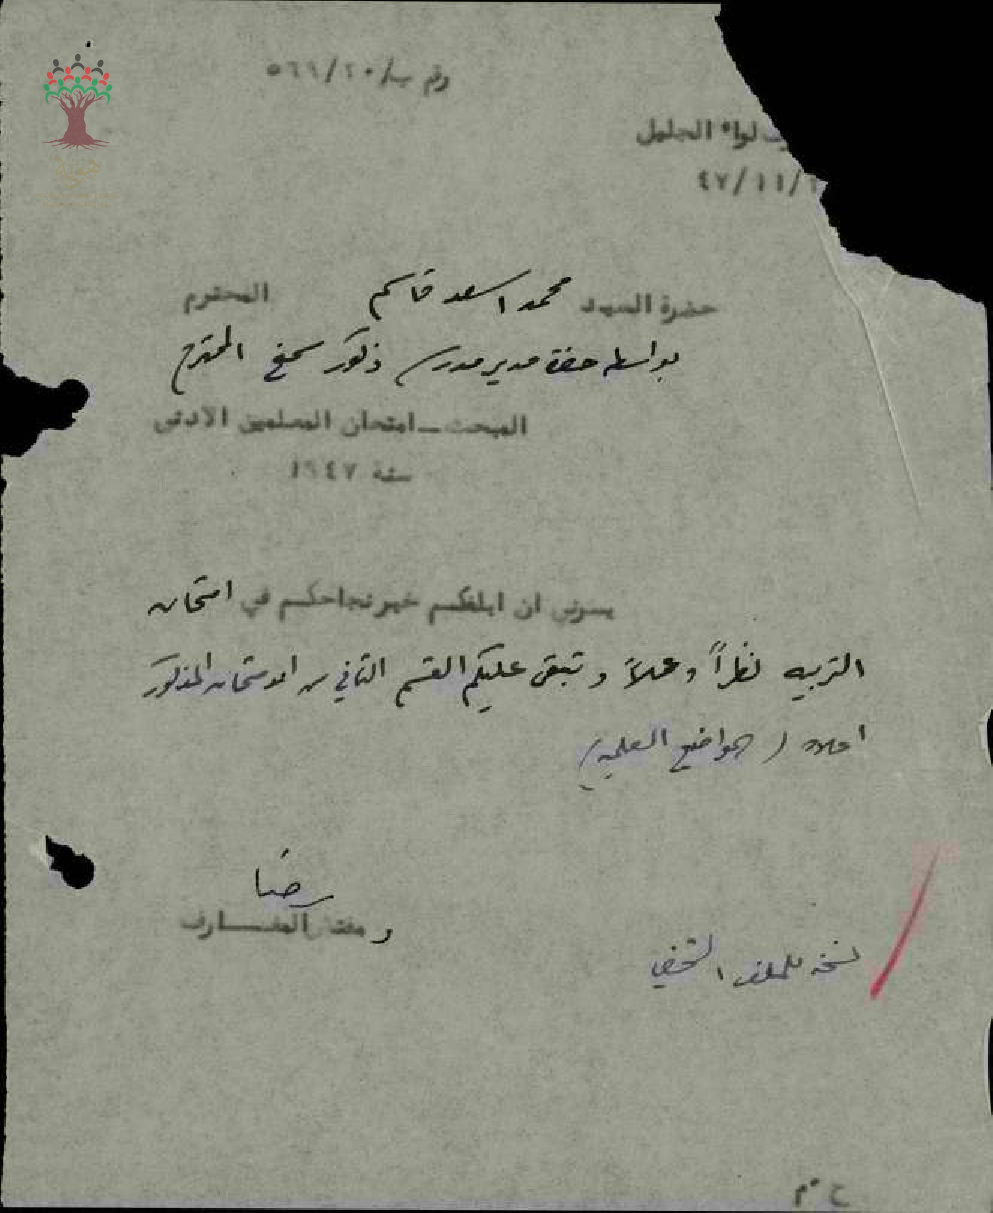 رقم ب/٢٠/٥٦٦
لواء الجليل
٤٧/١١/
حضرة السيد محمد اسعد قاسم المحترم
بواسطة حضرة مدير مدرسة ذكور سمخ المحترم
المبحث ــ امتحان المعلمين الادنى
سنة ١٩٤٧
يسرني ان ابلغكم خبر نجاحكم في امتحان
التربيه نظراً وعملاً وتبقى عليكم القسم الثاني من الامتحان المذكور
اعلاه (المواضيع العلميه)
رضا
و مفتش المعــارف
نسخه للملف الشخصي
ح٠م